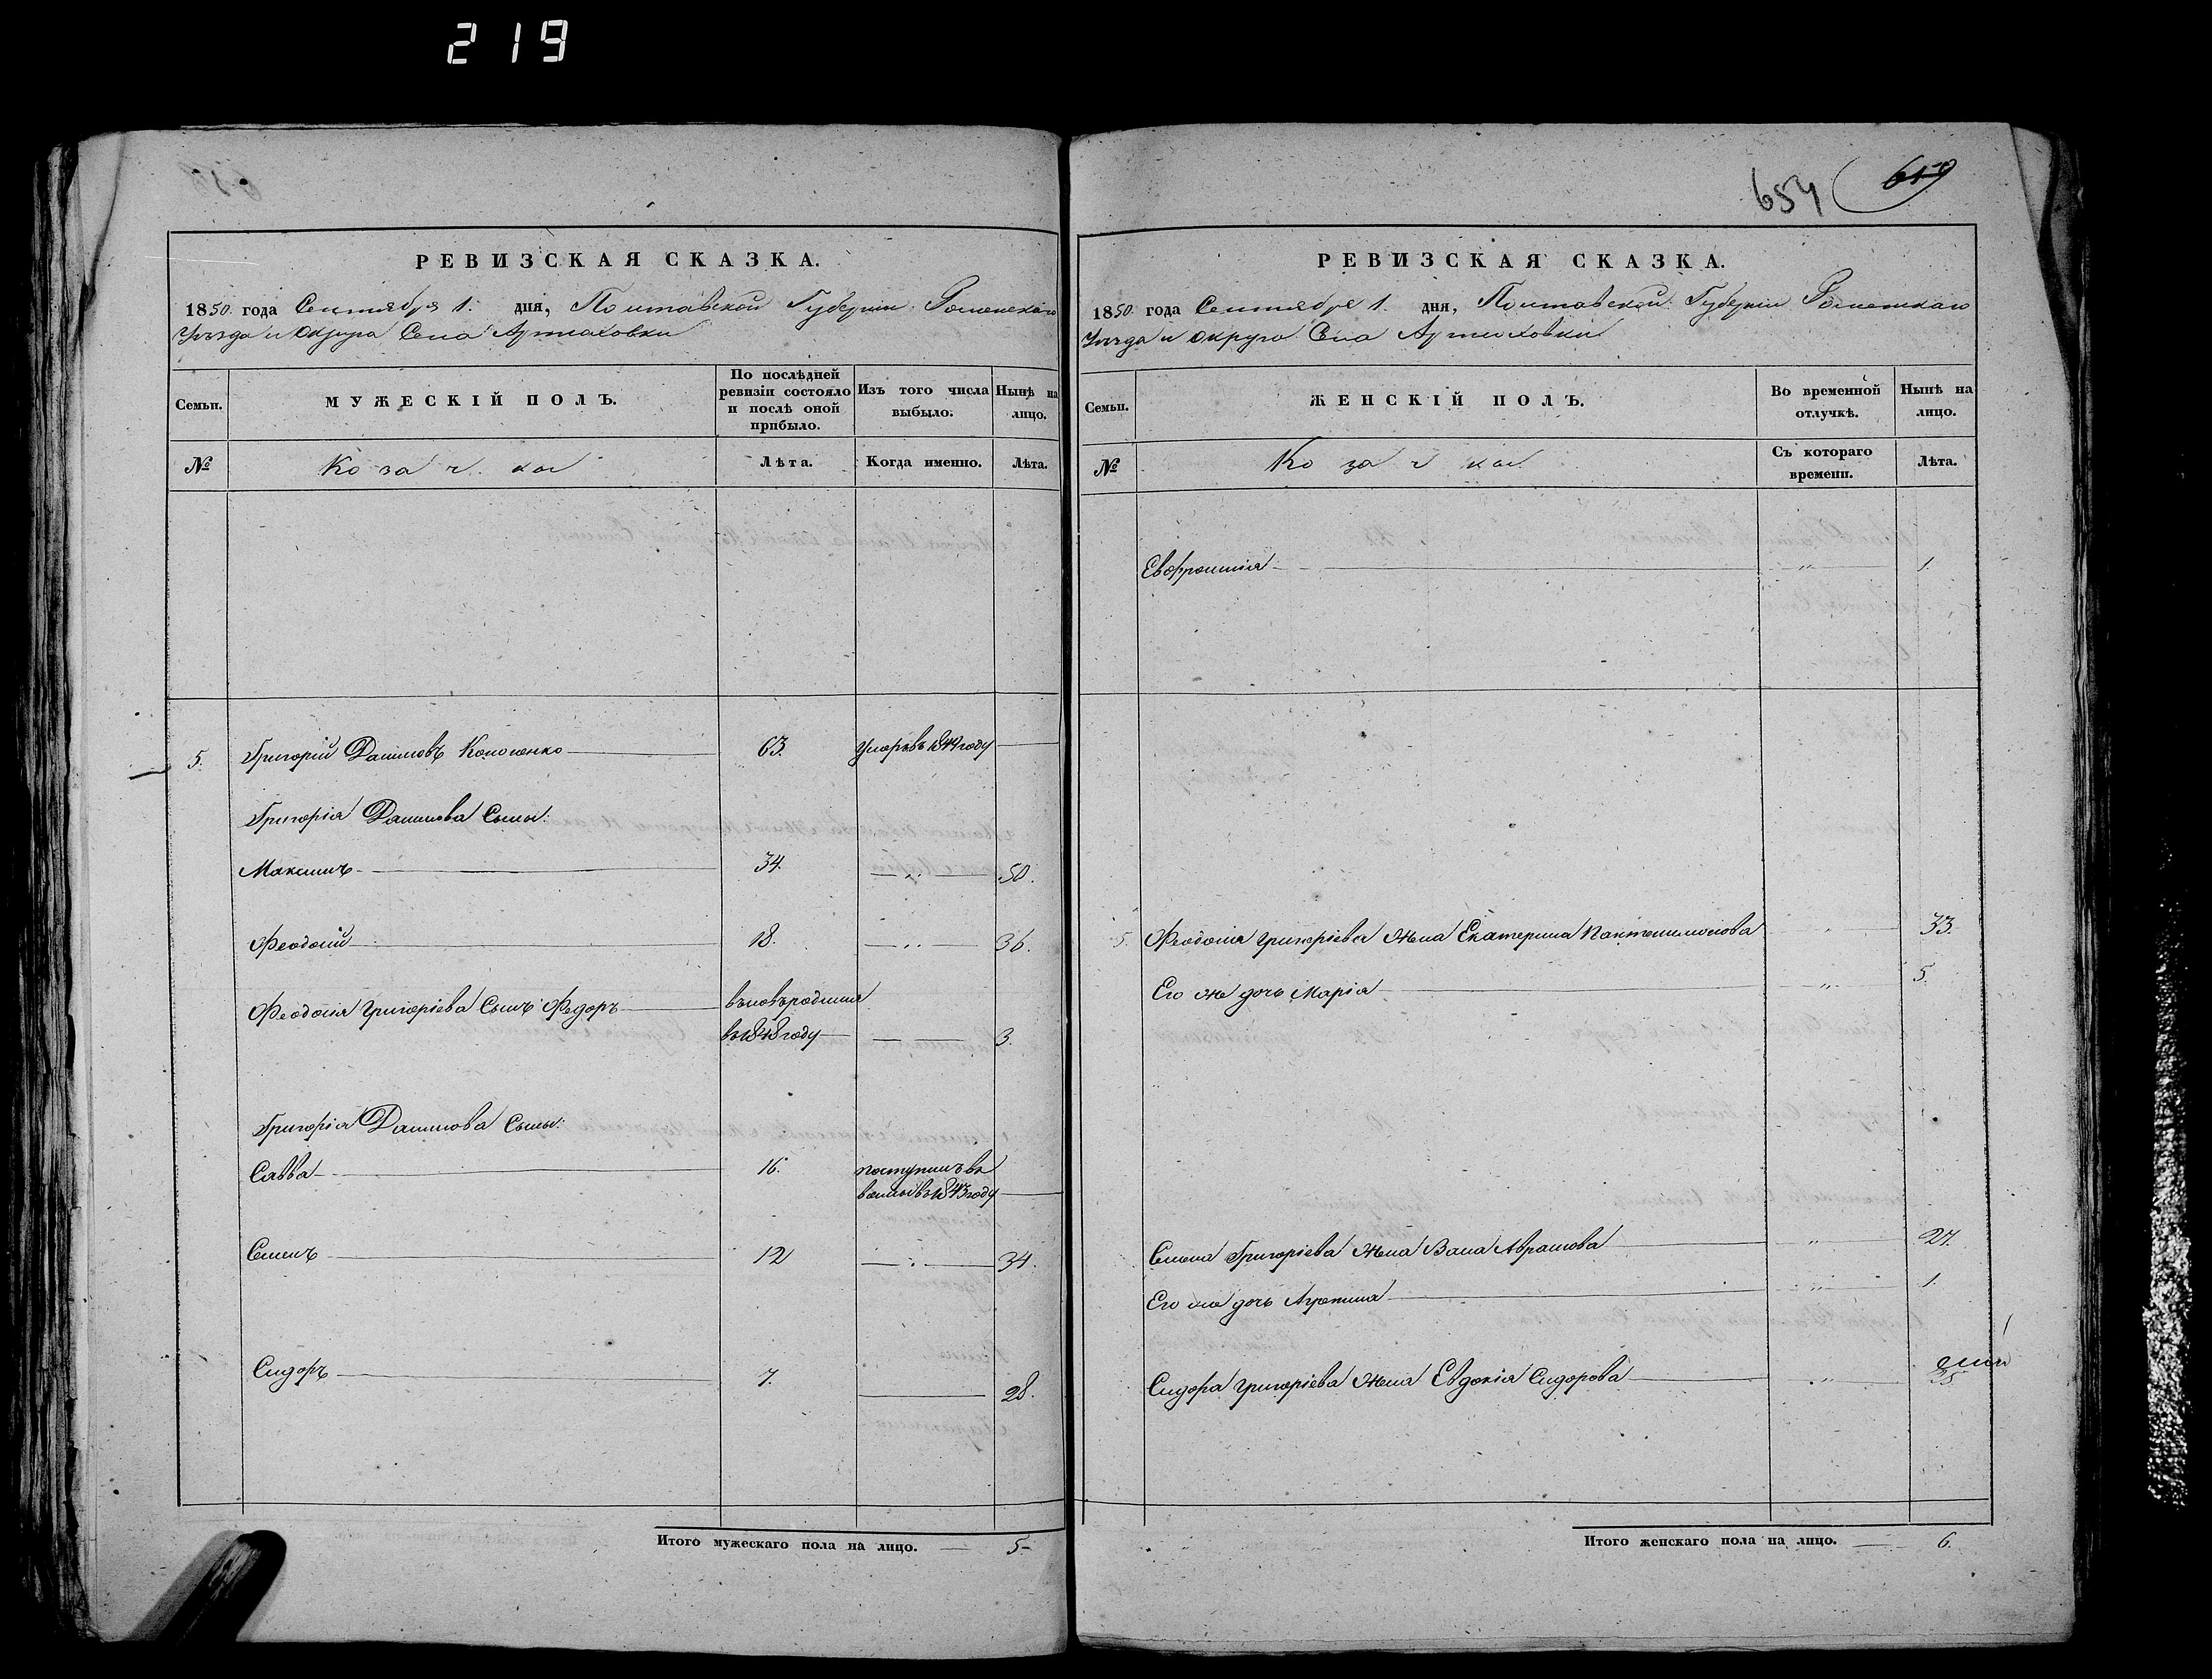 219
654 659
РЕВИЗСКАЯ СКАЗКА.
1850 года Сентября 1. дня, Полтавской Губернии Роменскаго
Уѣзда и Округа Села Артюховки
Семьи. МУЖЕСКІЙ ПОЛЪ. По послѣдней ревизіи состояло и послѣ оной прибыло. Изъ того числа выбыло. Нынѣ на лицо.
№ Козачки Лѣта. Когда именно. Лѣта.
5. Григорій Даниловъ 63. Умеръ въ 1844 году
Григорія Данилова Сыны:
Максимъ 34. 50.
Феодосій 18. 36.
Феодосія Григоріева Сынъ Федоръ вновърод
въ 1848 году 3.
Григорія Данилова Сыны:
Савва 16. поступилъ въ
въ 1843 году
Семенъ 12 34.
Сидоръ 7. 28.
Итого мужескаго пола на лицо. 5
РЕВИЗСКАЯ СКАЗКА.
1850 года Сентября 1. дня, Полтавской Губернии Роменскаго
Уѣзда и Округа Села Артюховки
Семьи. ЖЕНСКІЙ ПОЛЪ. Во временной отлучкѣ. Нынѣ на лицо.
№ Козачки Съ котораго времени. Лѣта.
Евфросинія " 1.
5. Феодосія Григоріева жена Екатерина Пантелимонова " 33.
Его же дочь Марія " 5.
Семена Григоріева жена Аврамова " 27.
Его же дочь Агрепина " 1.
Сидора Григоріева жена Евдокія Сидорова "
Итого женскаго пола на лицо. 6.